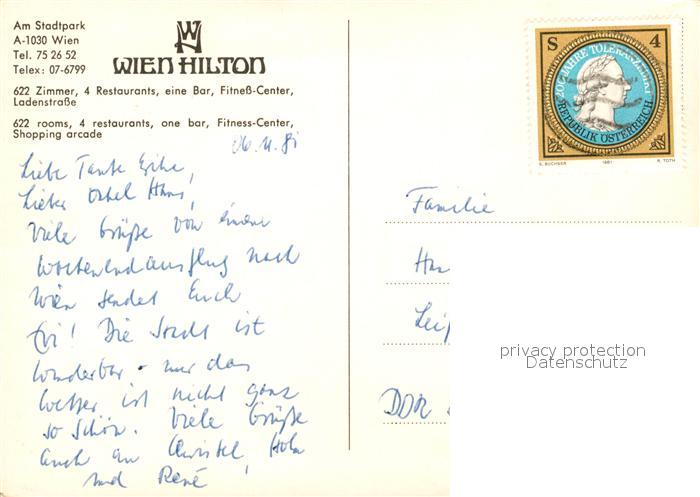 Am Stadtpark
A-1030 Wien
Tel. 75 26 52
Telex: 07-6799
WIEN HILTON
622 Zimmer, 4 Restaurants, eine Bar, Fitneß-Center,
Ladenstraße
622 rooms, 4 restaurants, one bar, Fitness-Center,
Shopping arcade
Liebe Tante
Lieber Onkel Hans,
Viele Grüße von einem
Wochenendausflug nach
Wien sendet Euch
Evi! Die Stadt ist
wunderbar - nur das
Wetter ist nicht ganz
so schön. Viele Grüße
auch an Christel,
und René
S 4
200 JAHRE TOLERANZPATENT
REPUBLIK ÖSTERREICH
1981
R. TOTH
Familie
Leip
DDR
privacy protection
Datenschutz